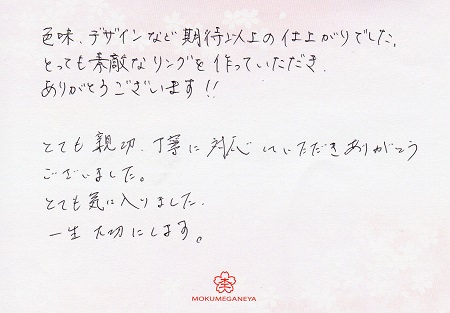 色味、デザインなど期待以上の仕上がりでした。
とっても素敵なリングを作っていただき
ありがとうございます!!
とても親切、丁寧に対応していただきありがとう
ございました。
とても気に入りました.
一生大切にします。
MOKUMEGANEYA